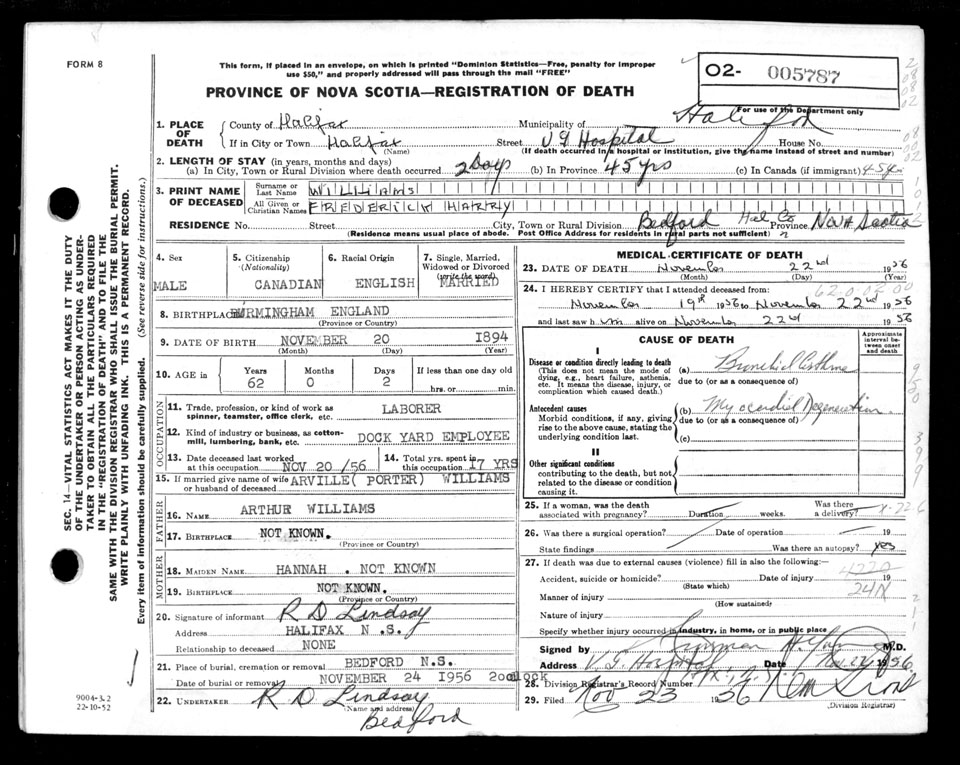 FORM 8
This form, if placed in an envelope, on which is printed "Dominion Statistics—Free, penalty for improper
use $50," and properly addressed will pass through the mail "FREE"
O2- 005787
PROVINCE OF NOVA SCOTIA—REGISTRATION OF DEATH
For use of the Department only
Halifax
1. PLACE OF DEATH
County of Halifax Municipality of
If in City or Town Halifax Street V G Hospital House No.
(Name) (If death occurred in a hospital or institution, give the name instead of street and number)
2. LENGTH OF STAY (in years, months and days)
(a) In City, Town or Rural Division where death occurred 2 Days (b) In Province 45 yrs (c) In Canada (if immigrant) 45
3. PRINT NAME OF DECEASED
Surname or Last Name WILLIAMS
All Given or Christian Names FREDERICK HARRY
RESIDENCE No. Street City, Town or Rural Division Bedford Hal Co Province Nova Scotia
(Residence means usual place of abode. Post Office Address for residents in rural parts not sufficient)
4. Sex MALE
5. Citizenship (Nationality) CANADIAN
6. Racial Origin ENGLISH
7. Single, Married, Widowed or Divorced (write the word) MARRIED
8. BIRTHPLACE BIRMINGHAM ENGLAND
(Province or Country)
9. DATE OF BIRTH NOVEMBER 20 1894
(Month) (Day) (Year)
10. AGE in Years Months Days If less than one day old
62 0 2 hrs. or min.
OCCUPATION
11. Trade, profession, or kind of work as spinner, teamster, office clerk, etc. LABORER
12. Kind of industry or business, as cotton-mill, lumbering, bank, etc. DOCK YARD EMPLOYEE
13. Date deceased last worked at this occupation NOV 20/56
14. Total yrs. spent in this occupation 17 YRS
15. If married give name of wife or husband of deceased ARVILLE( PORTER) WILLIAMS
FATHER
16. NAME ARTHUR WILLIAMS
17. BIRTHPLACE NOT KNOWN.
(Province or Country)
MOTHER
18. MAIDEN NAME HANNAH . NOT KNOWN
19. BIRTHPLACE NOT KNOWN.
(Province or Country)
20. Signature of informant R D Lindsay
Address HALIFAX N .S.
Relationship to deceased NONE
21. Place of burial, cremation or removal BEDFORD N.S.
Date of burial or removal NOVEMBER 24 1956 2oclock
22. UNDERTAKER R D Lindsay
(Name and address)
Bedford
MEDICAL CERTIFICATE OF DEATH
23. DATE OF DEATH November 22nd 1956
(Month) (Day) (Year)
24. I HEREBY CERTIFY that I attended deceased from:
November 19th 1956 to November 22nd 1956
and last saw him alive on November 22nd 1956
CAUSE OF DEATH
Approximate interval between onset and death
I
Disease or condition directly leading to death
(This does not mean the mode of dying, e.g., heart failure, asthenia, etc. It means the disease, injury, or complication which caused death.)
(a) Bronchial Asthma
due to (or as a consequence of)
Antecedent causes
Morbid conditions, if any, giving rise to the above cause, stating the underlying condition last.
(b) Myocardial Degeneration
due to (or as a consequence of)
(c)
II
Other significant conditions
contributing to the death, but not related to the disease or condition causing it.
25. If a woman, was the death associated with pregnancy? Duration weeks. Was there a delivery?
26. Was there a surgical operation? Date of operation 19
State findings Was there an autopsy? yes
27. If death was due to external causes (violence) fill in also the following:—
Accident, suicide or homicide? Date of injury 19
(State which)
Manner of injury
(How sustained)
Nature of injury
Specify whether injury occurred in industry, in home, or in public place
Signed by M.D.
Address V.G Hospital Date Nov. 22 1956
28. Division Registrar's Record Number
29. Filed Nov 23 1956
(Division Registrar)
SEC. 14—VITAL STATISTICS ACT MAKES IT THE DUTY
OF THE UNDERTAKER OR PERSON ACTING AS UNDER-
TAKER TO OBTAIN ALL THE PARTICULARS REQUIRED
IN THE "REGISTRATION OF DEATH" AND TO FILE THE
SAME WITH THE DIVISION REGISTRAR WHO SHALL ISSUE THE BURIAL PERMIT.
WRITE PLAINLY WITH UNFADING INK. THIS IS A PERMANENT RECORD.
Every item of information should be carefully supplied. (See reverse side for instructions.)
9004-3.2
22-10-52